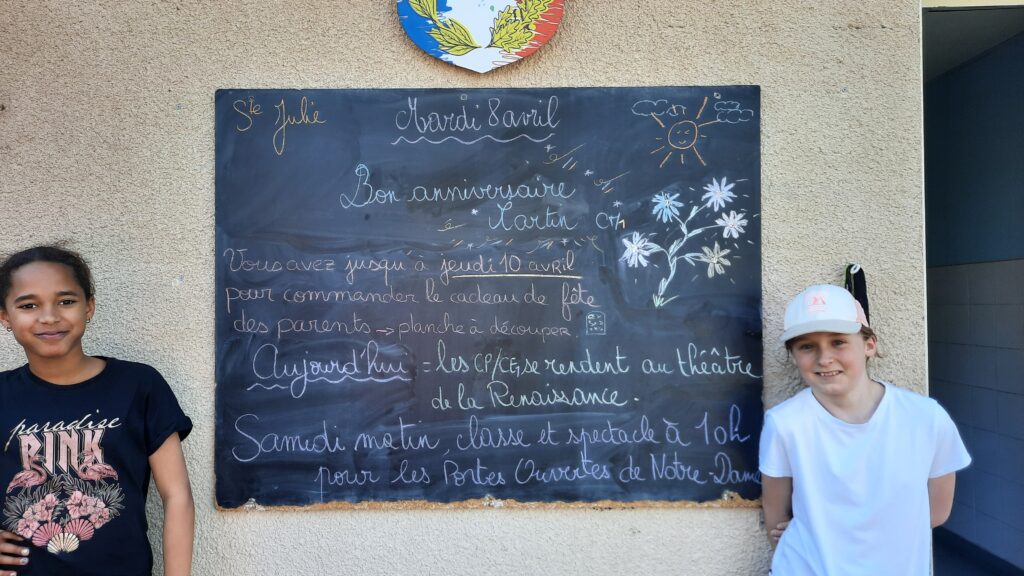 Ste Julie
Mardi 8 avril
Bon anniversaire
Martin
Vous avez jusqu'à jeudi 10 avril
pour commander le cadeau de fête
des parents → planche à découper
Aujourd'hui = les CP/CE1 se rendent au théâtre
de la Renaissance.
Samedi matin, classe et spectacle à 10h
pour les Portes Ouvertes de Notre-Dame
paradise
PINK